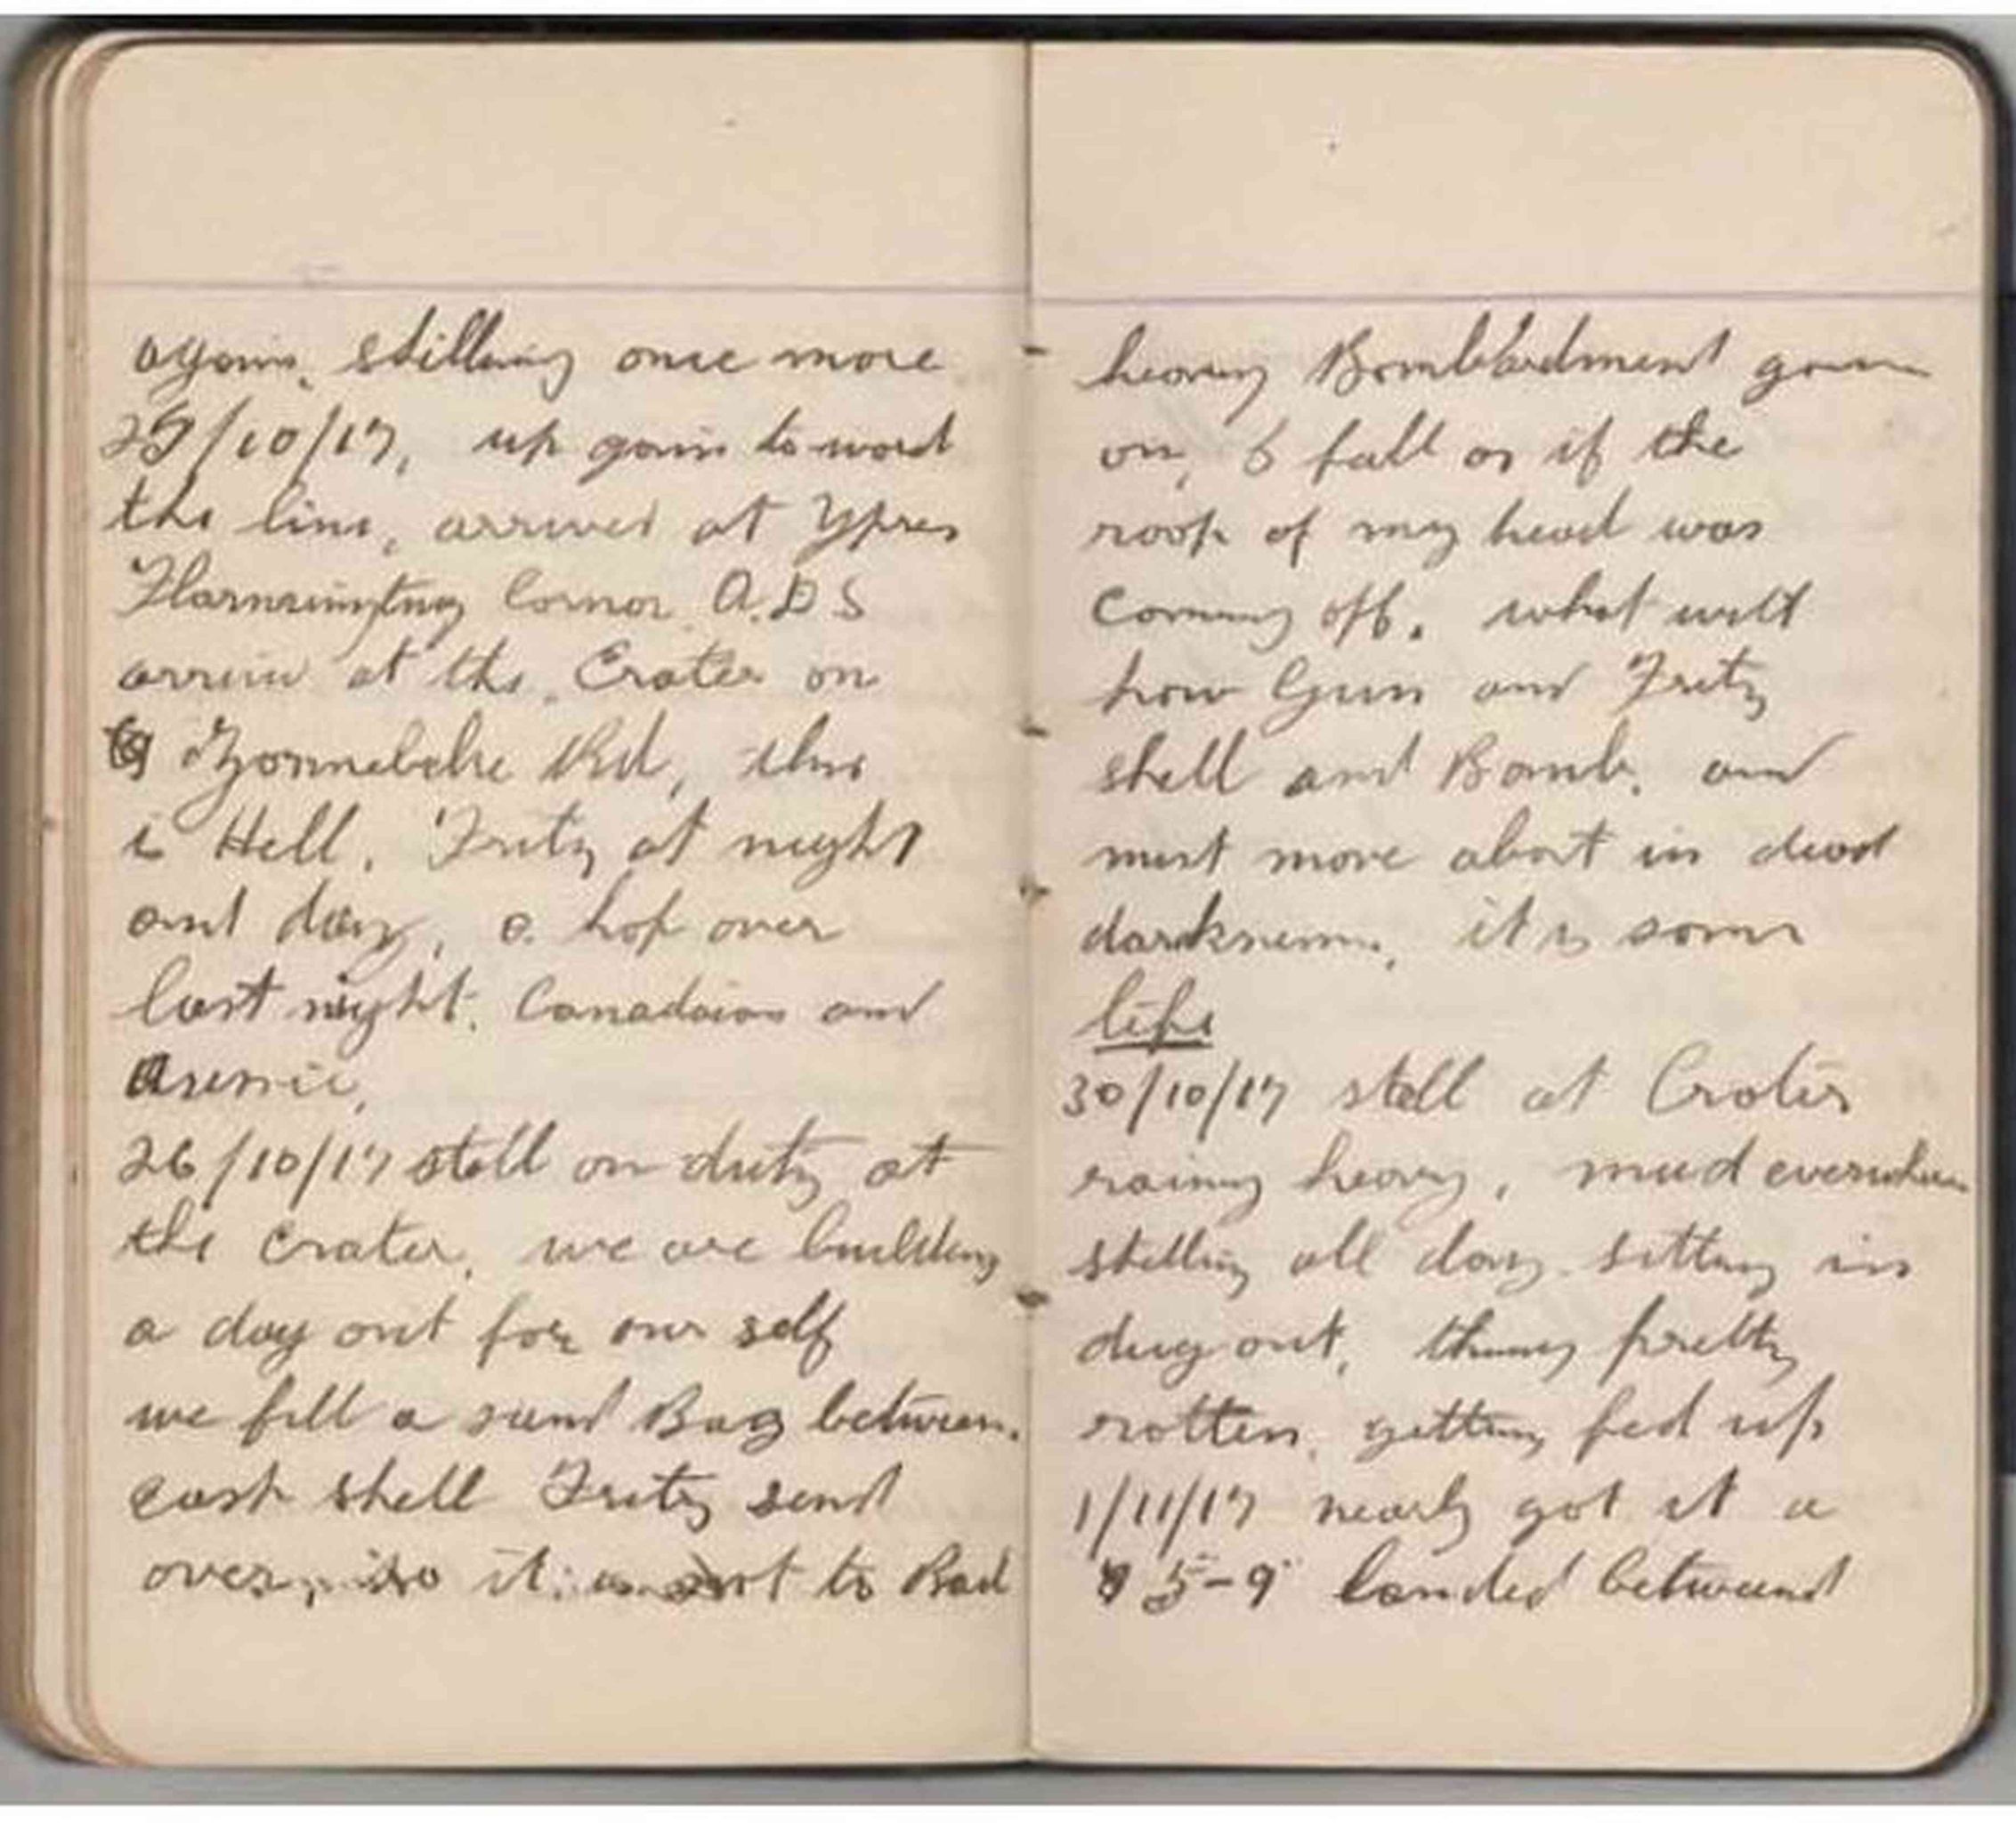 again. stilling once more
25/10/17, up goin to word
the line, arrived at Ypres
Cornor A.D S
arrive at the. Crater on
Zonnebeke Rd, this
is Hell. Fritz at night
and day, a hop over
last night. Canadaian and

26/10/17 still on duty at
the Crater. we are building
a dug out for our self
we fill a sand Bag between.
each shell Fritz send
over, so it is not to Bad
heavy Bombardment goin
on, I fell as if the
roof of my head was
coming off. what with
how Gun and Fritz
shell and Bomb. and
must move about in dead
darkness. it is some
life
30/10/17 still at Crater
rainy heavy, mud everwhere
shelling all day. sitting in
dug out, things pretty
rotten. getting fed up
1/11/17 nearly got it a
5-9 landed betweend